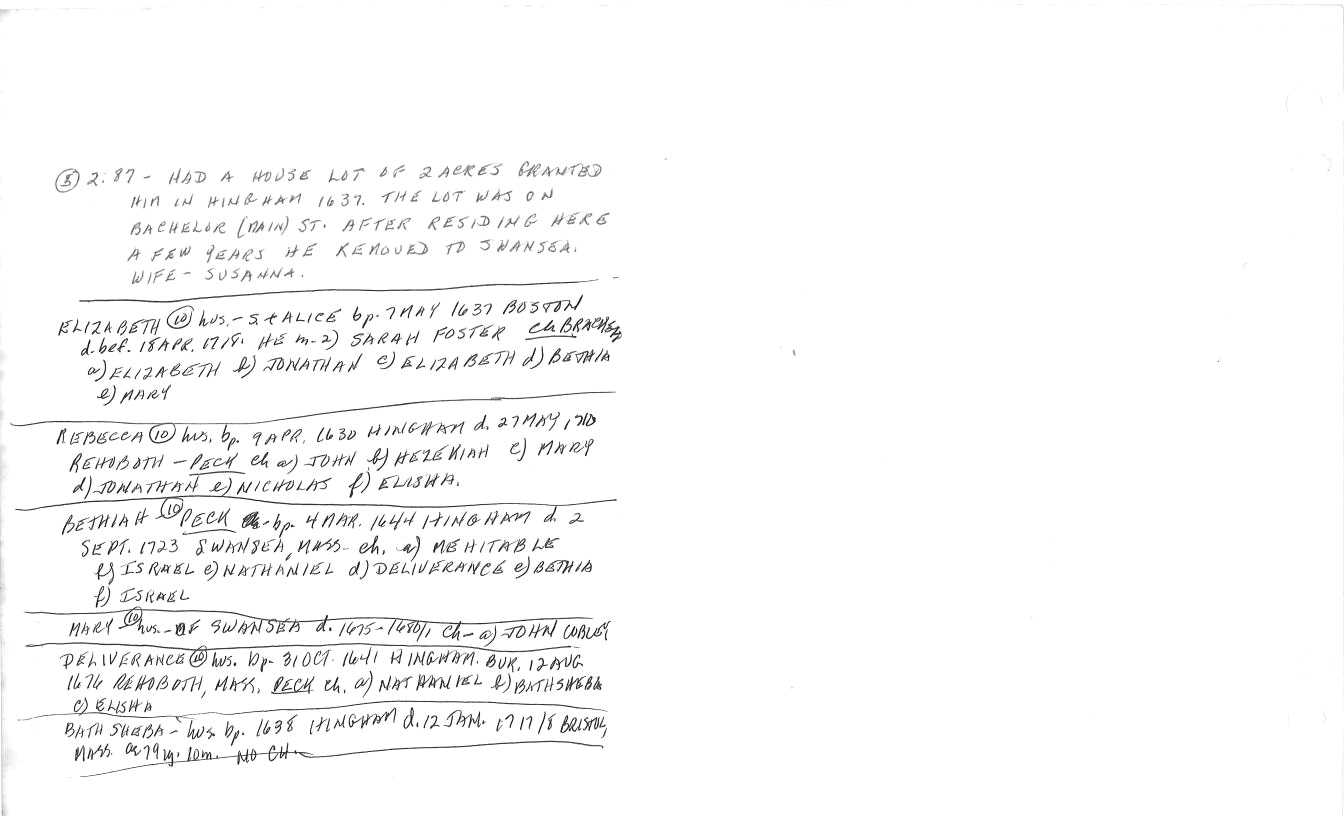 (B) 2:87 - HAD A HOUSE LOT OF 2 ACRES GRANTED
HIM IN HINGHAM 1637. THE LOT WAS ON
BACHELOR (MAIN) ST. AFTER RESIDING HERE
A FEW YEARS HE REMOVED TO SWANSEA.
WIFE - SUSANNA.
ELIZABETH (10) hus. - S. + ALICE bp. 7 MAY 1637 BOSTON
d. bef. 18 APR. 1718. HE m-2) SARAH FOSTER ch
a) ELIZABETH b) JONATHAN c) ELIZABETH d) BETHIA
e) MARY
REBECCA (10) hus. bp. 9 APR. 1630 HINGHAM d. 27 MAY 1710
REHOBOTH - PECK ch a) JOHN b) HEZEKIAH c) MARY
d) JONATHAN e) NICHOLAS f) ELISHA.
BETHIAH (10) PECK - bp. 4 MAR. 1644 HINGHAM d. 2
SEPT. 1723 SWANSEA, MASS - ch. a) MEHITABLE
b) ISRAEL c) NATHANIEL d) DELIVERANCE e) BETHIA
f) ISRAEL
MARY (10) hus. - OF SWANSEA d. 1675-1680/1 ch - a) JOHN
DELIVERANCE (10) hus. bp. 31 OCT. 1641 HINGHAM. BUR. 12 AUG
1676 REHOBOTH, MASS. PECK ch. a) NATHANIEL b) BATHSHEBA
c) ELISHA
BATHSHEBA - hus. bp. 1638 HINGHAM d. 12 JAN. 1717/8 BRISTOL,
MASS. ae 79 y. 10m. NO CH.